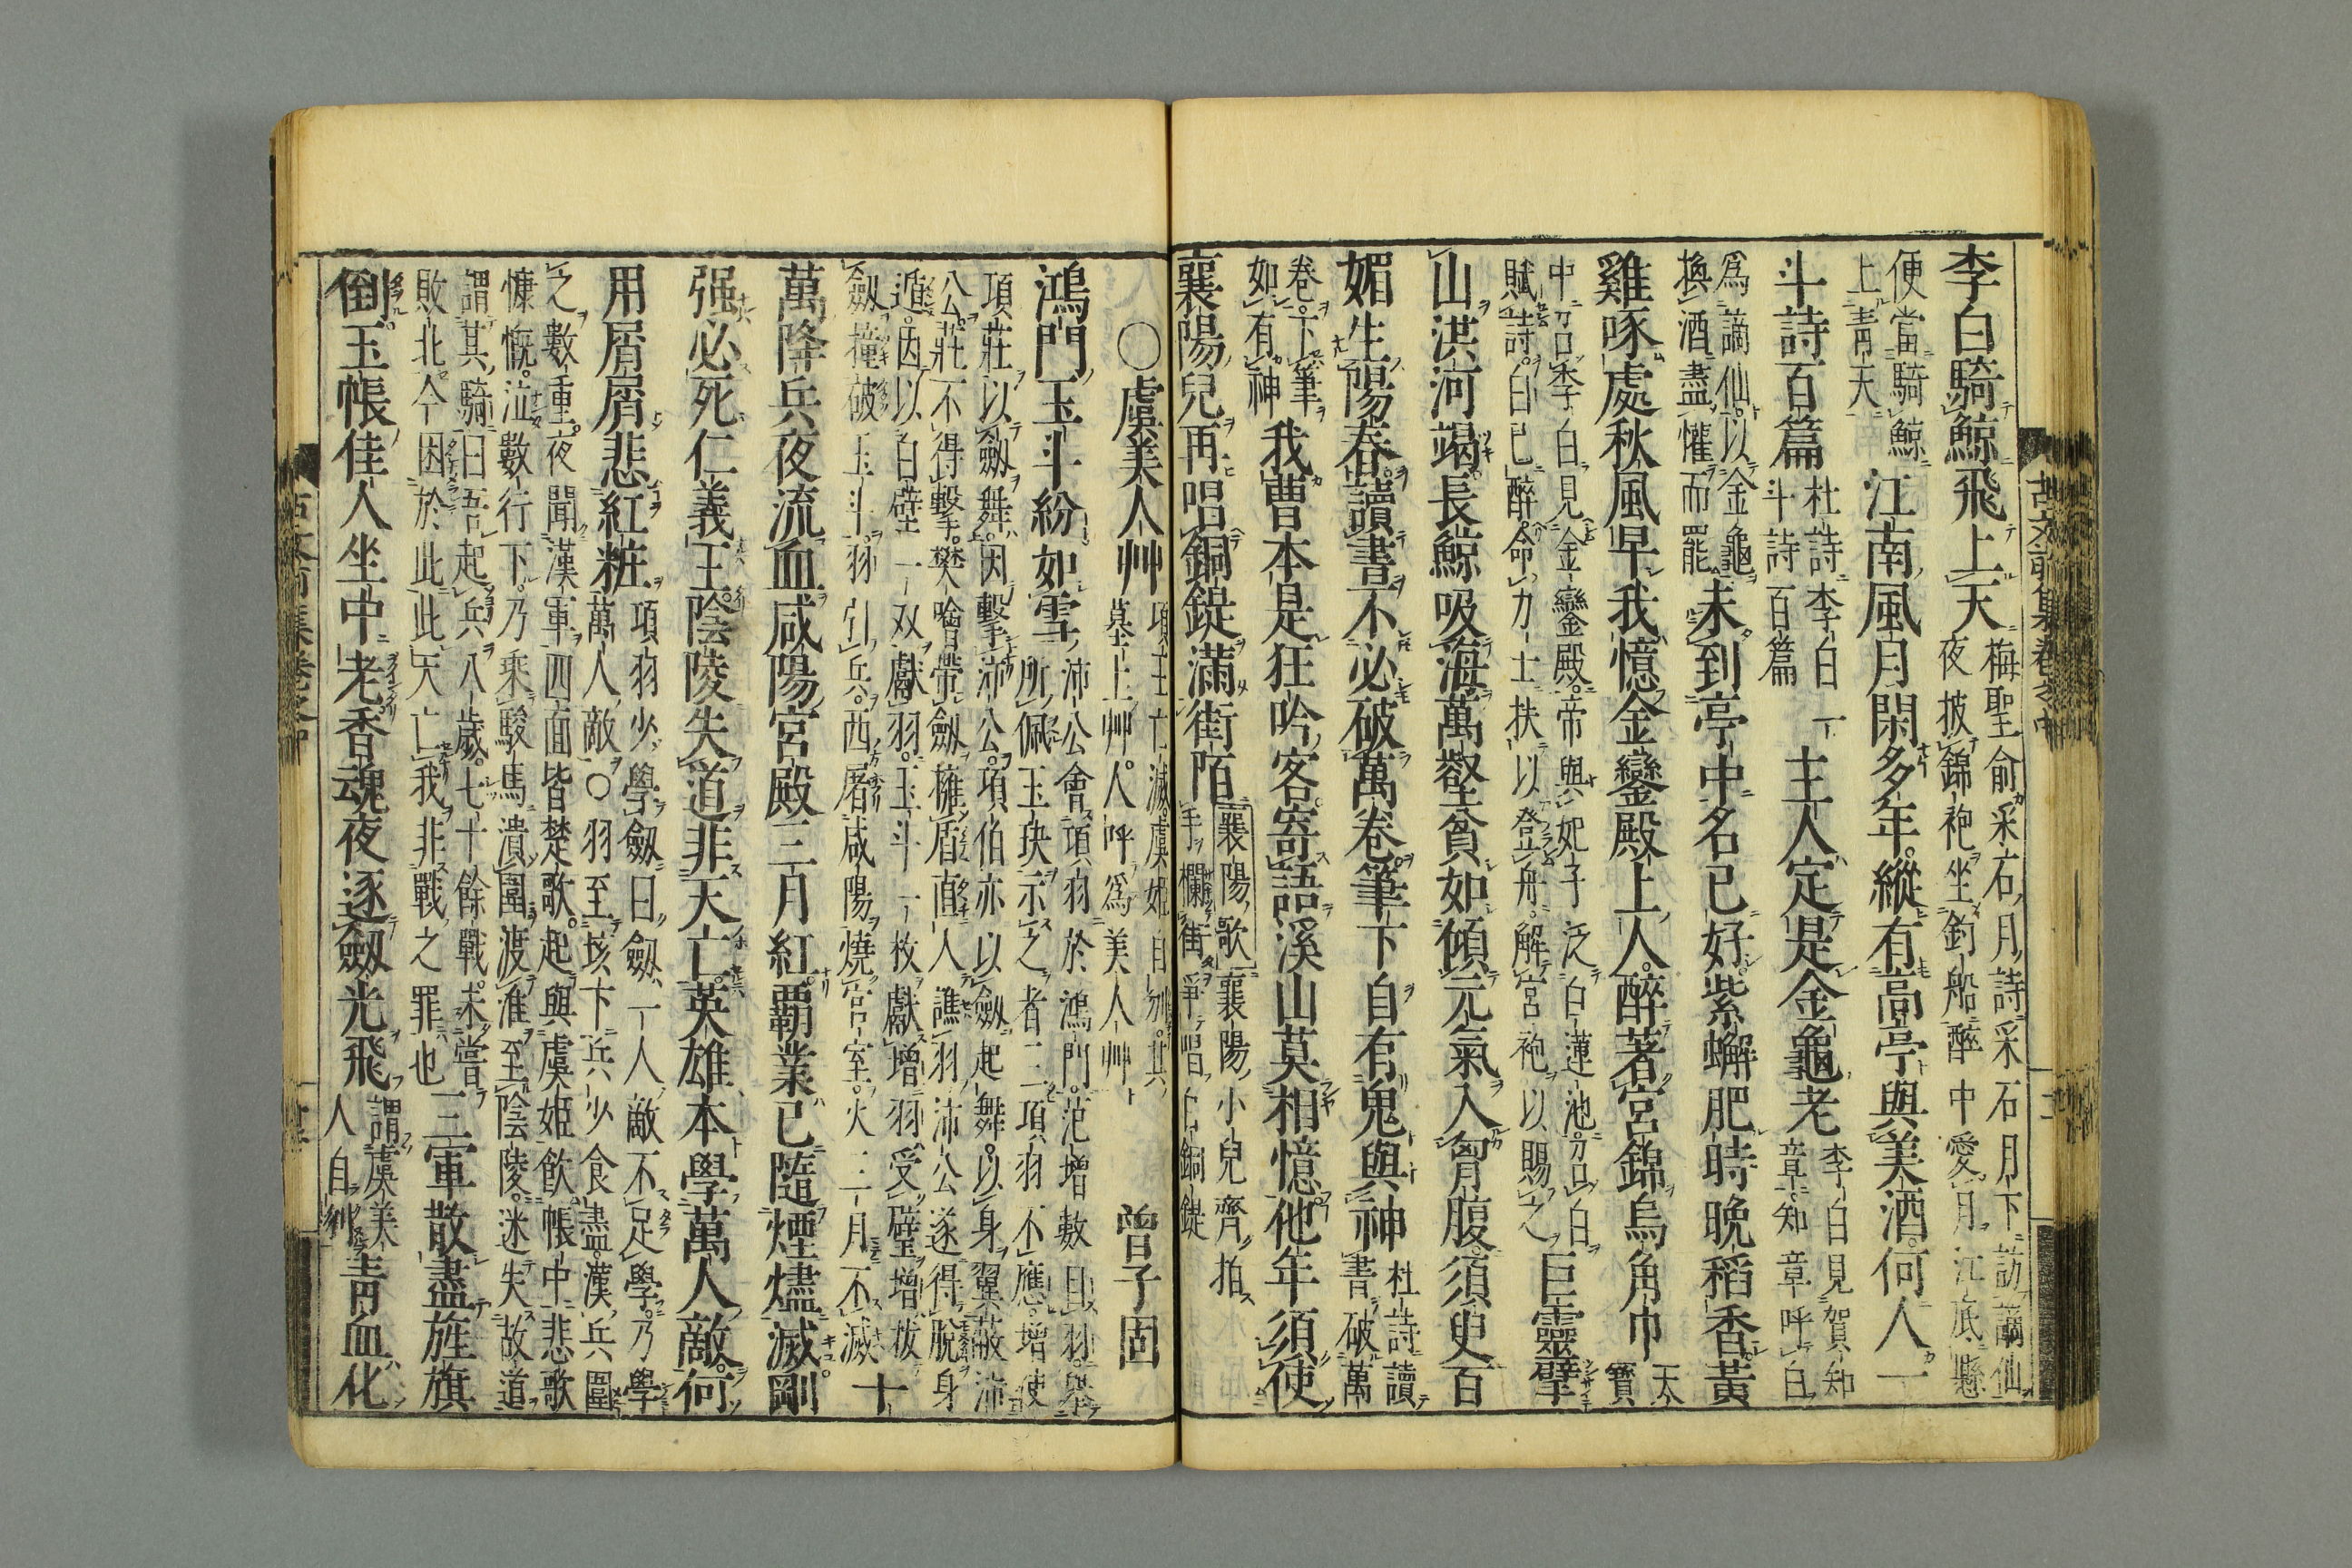 李白騎鯨飛上天 梅聖俞采石月詩采石月下訪謫仙夜披錦袍坐釣船醉中愛月江底懸
便當騎鯨上青天 江南風月閑多年縱有高亭與美酒何人一
斗詩百篇 杜詩李白一斗詩百篇 主人定是金龜老 李白見賀知章知章呼白
為謫仙以金龜換酒盡懽而罷 未到亭中名已好紫蠏肥時晚稻香黃
雞啄處秋風早我憶金鑾殿上人醉著宮錦烏角巾 天寶
中召李白見金鑾殿帝與妃子泛白蓮池召白賦詩白已醉命力士扶以登舟解宮袍以賜之 巨靈擘
山洪河竭長鯨吸海萬壑貧如傾元氣入胷腹須臾百
媚生陽春讀書不必破萬卷筆下自有鬼與神 杜詩讀書破萬
卷下筆如有神 我曹本是狂吟客寄語溪山莫相憶他年須使
襄陽兒再唱銅鍉滿街陌 襄陽歌襄陽小兒齊拍手欄街爭唱白銅鍉
○虞美人艸 項王亡滅虞姬自刎其墓上艸人呼為美人艸 曾子固
鴻門玉斗紛如雪 沛公會項羽於鴻門范增數目羽舉所佩玉玦示之者三項羽不應增使
項莊以劔舞因擊沛公項伯亦以劔起舞以身翼蔽沛公莊不得擊樊噲帶劔擁盾直入譙羽沛公遂得脫身
遁因以白璧一双獻羽玉斗一枚獻增羽受璧增拔劔撞破玉斗羽引兵西屠咸陽燒宮室火三月不滅 十
萬降兵夜流血咸陽宮殿三月紅覇業已隨煙燼滅剛
强必死仁義王陰陵失道非天亡英雄本學萬人敵何
用屑屑悲紅粧 項羽少學劔曰劔一人敵不足學乃學萬人敵○羽至垓下兵少食盡漢兵圍
之數重夜聞漢軍四面皆楚歌起與虞姬飲帳中悲歌慷慨泣數行下乃乘駿馬潰圍渡淮至陰陵迷失故道
謂其騎曰吾起兵八歲七十餘戰未嘗敗北今困於此此天亡我非戰之罪也 三軍散盡旌旗
倒玉帳佳人坐中老香魂夜逐劔光飛 謂虞美人自刎 青血化
古文前集卷之中